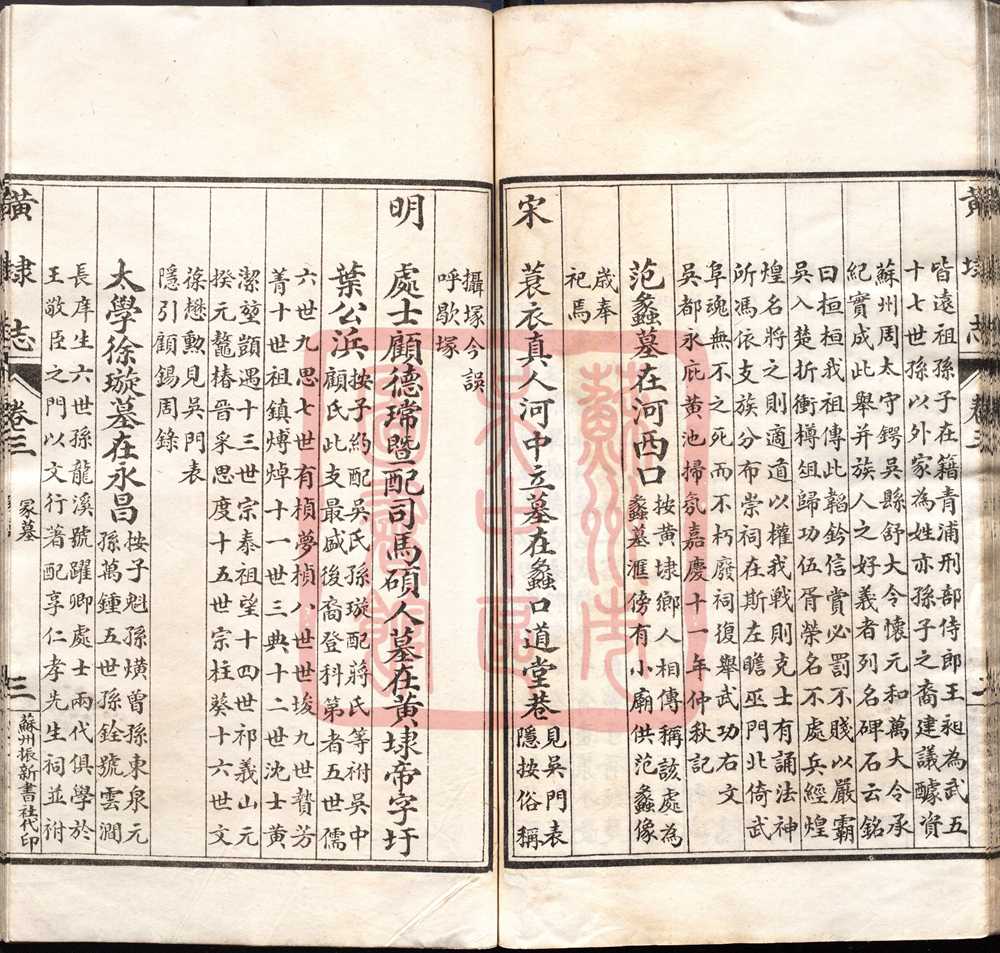 皆遠祖孫子在籍青浦刑部侍郎王昶為武五
十七世孫孫以外家為姓亦孫子之裔建議醵資
蘇州周太守鍔吳縣舒大令懷元和萬大令承
紀實成此舉并族人之好義者列名碑石云銘
曰桓桓我祖傳此韜鈐信賞必罰不賤以嚴霸
吳入楚折衝樽俎歸功伍胥榮名不處兵經煌
煌名將之則適道以權我戰則克士有誦法神
所馮依支族分布崇祠在斯左瞻巫門北倚武
阜魂無不之死而不朽廢祠復舉武功右文
吳都永庇黃池掃氛嘉慶十一年仲秋記
范蠡墓在河西口
按黃埭鄉人相傳稱該處為
蠡墓滙傍有小廟供范蠡像
歲奉
祀焉
宋
蓑衣真人河中立墓在蠡口道堂巷
見吳門表
隱按俗稱
攝塚今誤
呼歇塚
明
處士顧德瑺暨配司馬碩人墓在黃埭帝字圩
葉公浜
按子約配吳氏孫璇配蔣氏等祔吳中
顧氏此支最盛後裔登科第者五世儒
六世九思七世有楨夢楨八世世埈九世贄芳
菁十世祖鎮煿焯十一世三典十二世沈士黃
潔堃顗遇十三世宗泰祖望十四世祁義山元
揆元鼇椿晉采思度十五世宗柱葵十六世文
蓧懋勳見吳門表
隱引顧錫周錄
太學徐璇墓在永昌
按子魁孫熿曾孫東泉元
孫萬鍾五世孫銓號雲澗
長庠生六世孫龍溪號躍卿處士兩代俱學於
王敬臣之門以文行著配享仁孝先生祠並祔
黃埭志
卷三
冢墓
三
蘇州振新書社代印